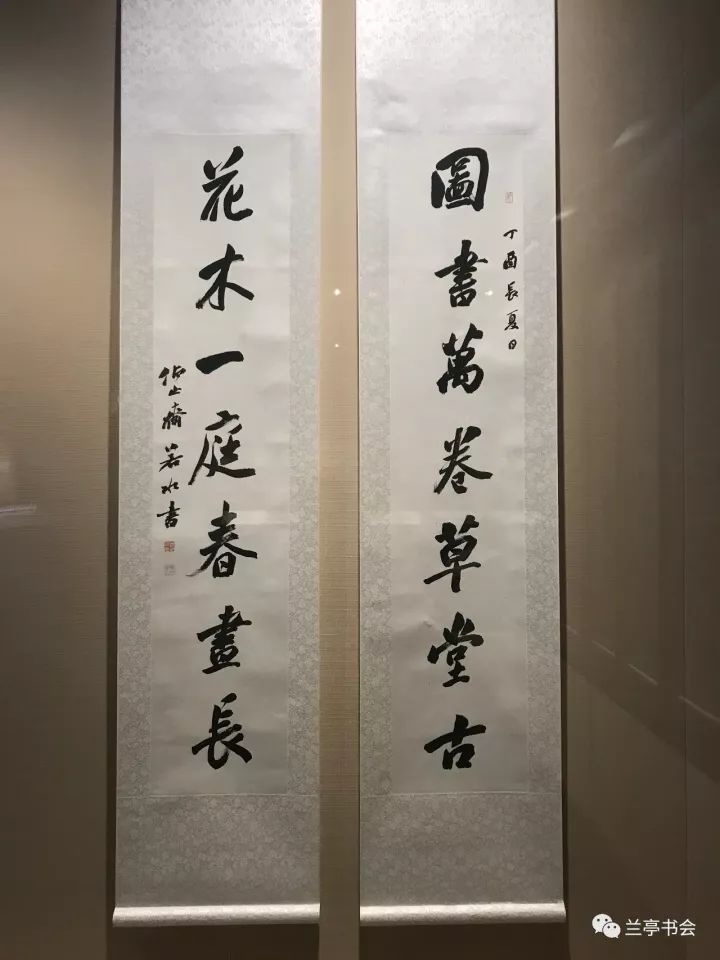 圖書萬卷草堂古
丁酉長夏日
花木一庭春晝長
若水書
兰亭书会